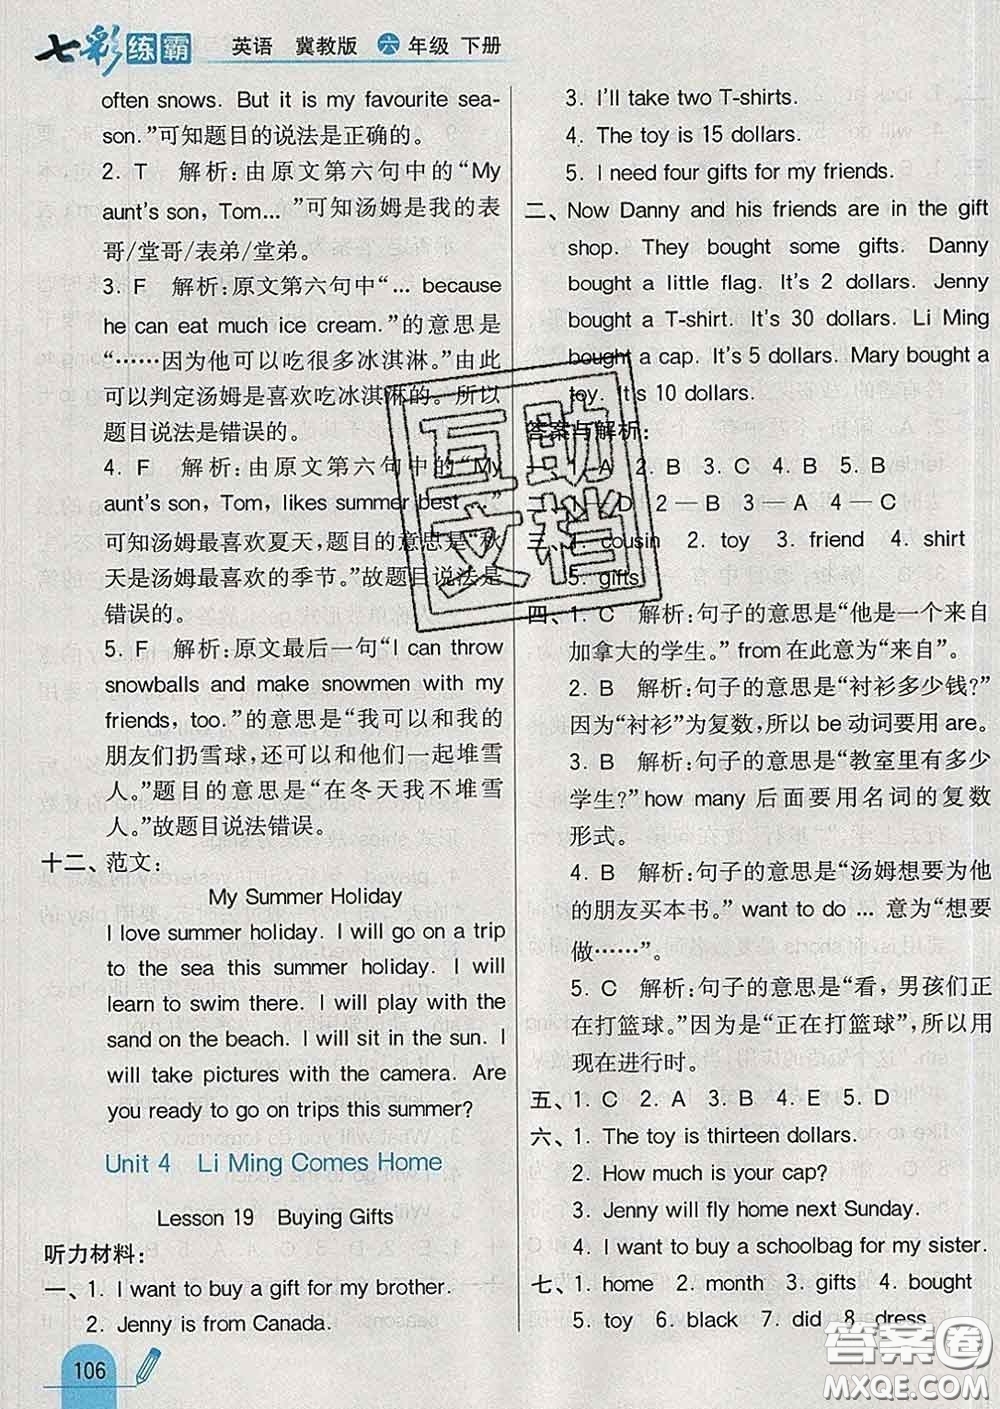 七彩练霸 英语 冀教版 六年级 下册
often snows. But it is my favourite sea-
son.”可知题目的说法是正确的。
2. T 解析:由原文第六句中的“My
aunt's son, Tom...”可知汤姆是我的表
哥/堂哥/表弟/堂弟。
3. F 解析:原文第六句中“... because
he can eat much ice cream.”的意思是
“……因为他可以吃很多冰淇淋。”由此
可以判定汤姆是喜欢吃冰淇淋的。所以
题目说法是错误的。
4. F 解析:由原文第六句中的“My
aunt's son, Tom, likes summer best ...”
可知汤姆最喜欢夏天,题目的意思是“秋
天是汤姆最喜欢的季节。”故题目说法是
错误的。
5. F 解析:原文最后一句“I can throw
snowballs and make snowmen with my
friends, too.”的意思是“我可以和我的
朋友们扔雪球,还可以和他们一起堆雪
人。”题目的意思是“在冬天我不堆雪
人。”故题目说法错误。
十二、范文:
My Summer Holiday
I love summer holiday. I will go on a trip
to the sea this summer holiday. I will
learn to swim there. I will play with the
sand on the beach. I will sit in the sun. I
will take pictures with the camera. Are
you ready to go on trips this summer?
Unit 4 Li Ming Comes Home
Lesson 19 Buying Gifts
听力材料:
一、1. I want to buy a gift for my brother.
2. Jenny is from Canada.
106
3. I'll take two T-shirts.
4. The toy is 15 dollars.
5. I need four gifts for my friends.
二、Now Danny and his friends are in the gift
shop. They bought some gifts. Danny
bought a little flag. It's 2 dollars. Jenny
bought a T-shirt. It's 30 dollars. Li Ming
bought a cap. It's 5 dollars. Mary bought a
toy. It's 10 dollars.
答案与解析:
一、1. A 2. B 3. C 4. B 5. B
二、1—D 2—B 3—A 4—C
三、1. cousin 2. toy 3. friend 4. shirt
5. gifts
四、1. C 解析:句子的意思是“他是一个来自
加拿大的学生。”from在此意为“来自”。
2. B 解析:句子的意思是“衬衫多少钱?”
因为“衬衫”为复数,所以 be 动词要用 are。
3. B 解析:句子的意思是“教室里有多少
学生?”how many 后面要用名词的复数
形式。
4. B 解析:句子的意思是“汤姆想要为他
的朋友买本书。”want to do ... 意为“想要
做……”。
5. C 解析:句子的意思是“看,男孩们正
在打篮球。”因为是“正在打篮球”,所以用
现在进行时。
五、1. C 2. A 3. B 4. E 5. D
六、1. The toy is thirteen dollars.
2. How much is your cap?
3. Jenny will fly home next Sunday.
4. I want to buy a schoolbag for my sister.
七、1. home 2. month 3. gifts 4. bought
5. toy 6. black 7. did 8. dress
互助
文档
答案圈
MXQE.COM